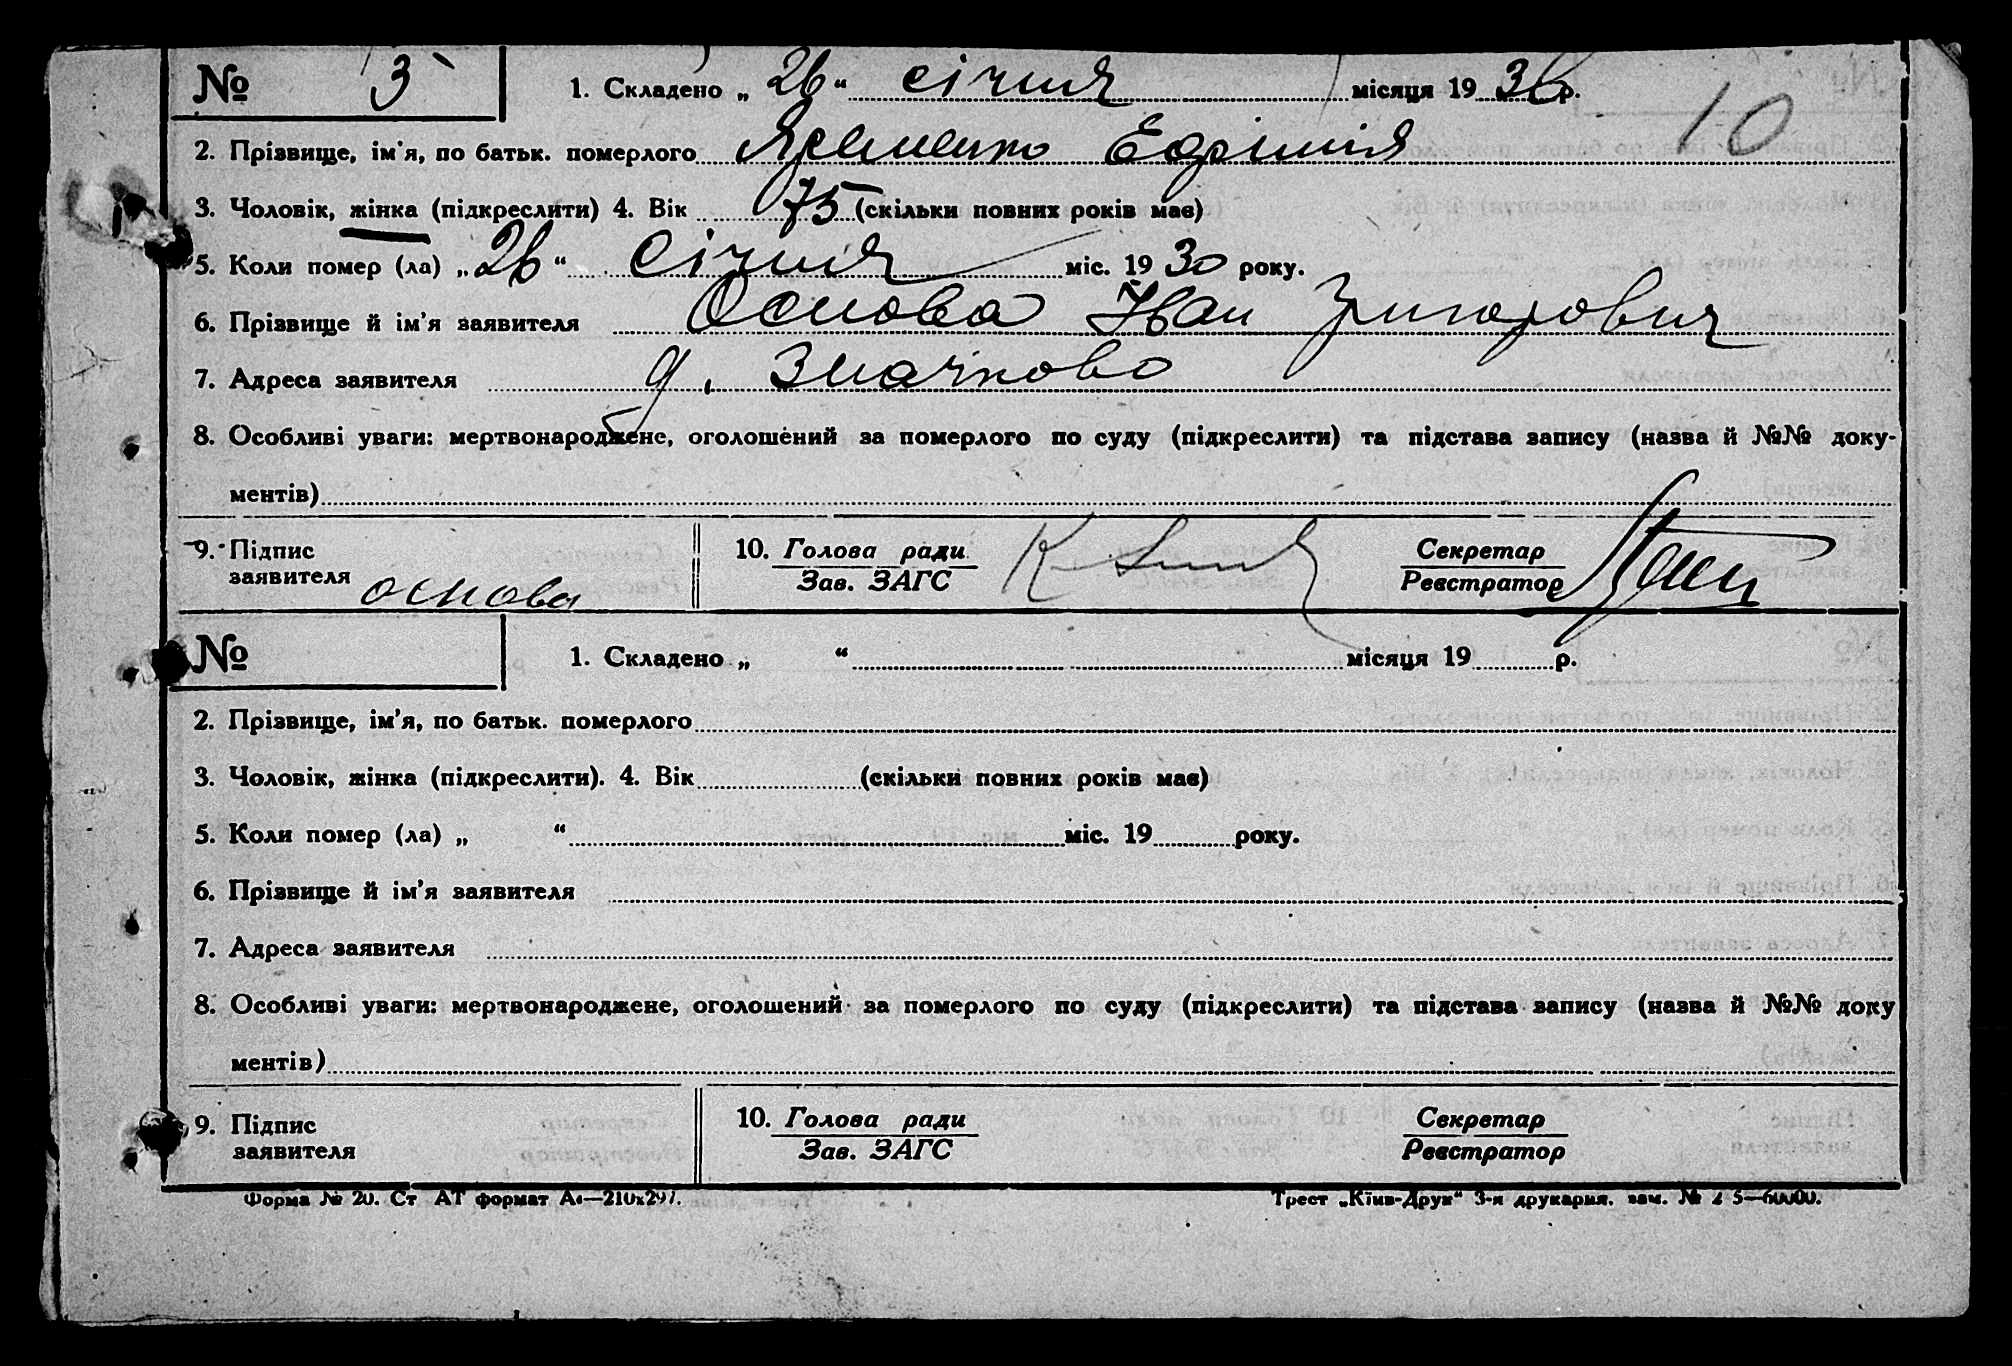 № 3 1. Складено „ 26 “ січня місяця 1930 р.
10
2. Прізвище, ім'я, по батьк. померлого Яременко Ефримія
3. Чоловік, жінка (підкреслити) 4. Вік 75 (скільки повних років має)
5. Коли помер (ла) „ 26 “ Січня міс. 19 30 року.
6. Прізвище й ім'я заявителя Основа Иван Григорович
7. Адреса заявителя д. Значково
8. Особливі уваги: мертвонароджене, оголошений за померлого по суду (підкреслити) та підстава запису (назва й №№ доку-
ментів)
9. Підпис заявителя основа 10. Голова ради Зав. ЗАГС Секретар Реєстратор
№ 1. Складено „ “ місяця 19 р.
2. Прізвище, ім'я, по батьк. померлого
3. Чоловік, жінка (підкреслити). 4. Вік (скільки повних років має)
5. Коли помер (ла) „ “ міс. 19 року.
6. Прізвище й ім'я заявителя
7. Адреса заявителя
8. Особливі уваги: мертвонароджене, оголошений за померлого по суду (підкреслити) та підстава запису (назва й №№ доку
ментів)
9. Підпис заявителя 10. Голова ради Зав. ЗАГС Секретар Реєстратор
Форма № 20. Ст АТ формат А4—210х297. Трест „Київ-Друк“ 3-я друкарня. зам. №